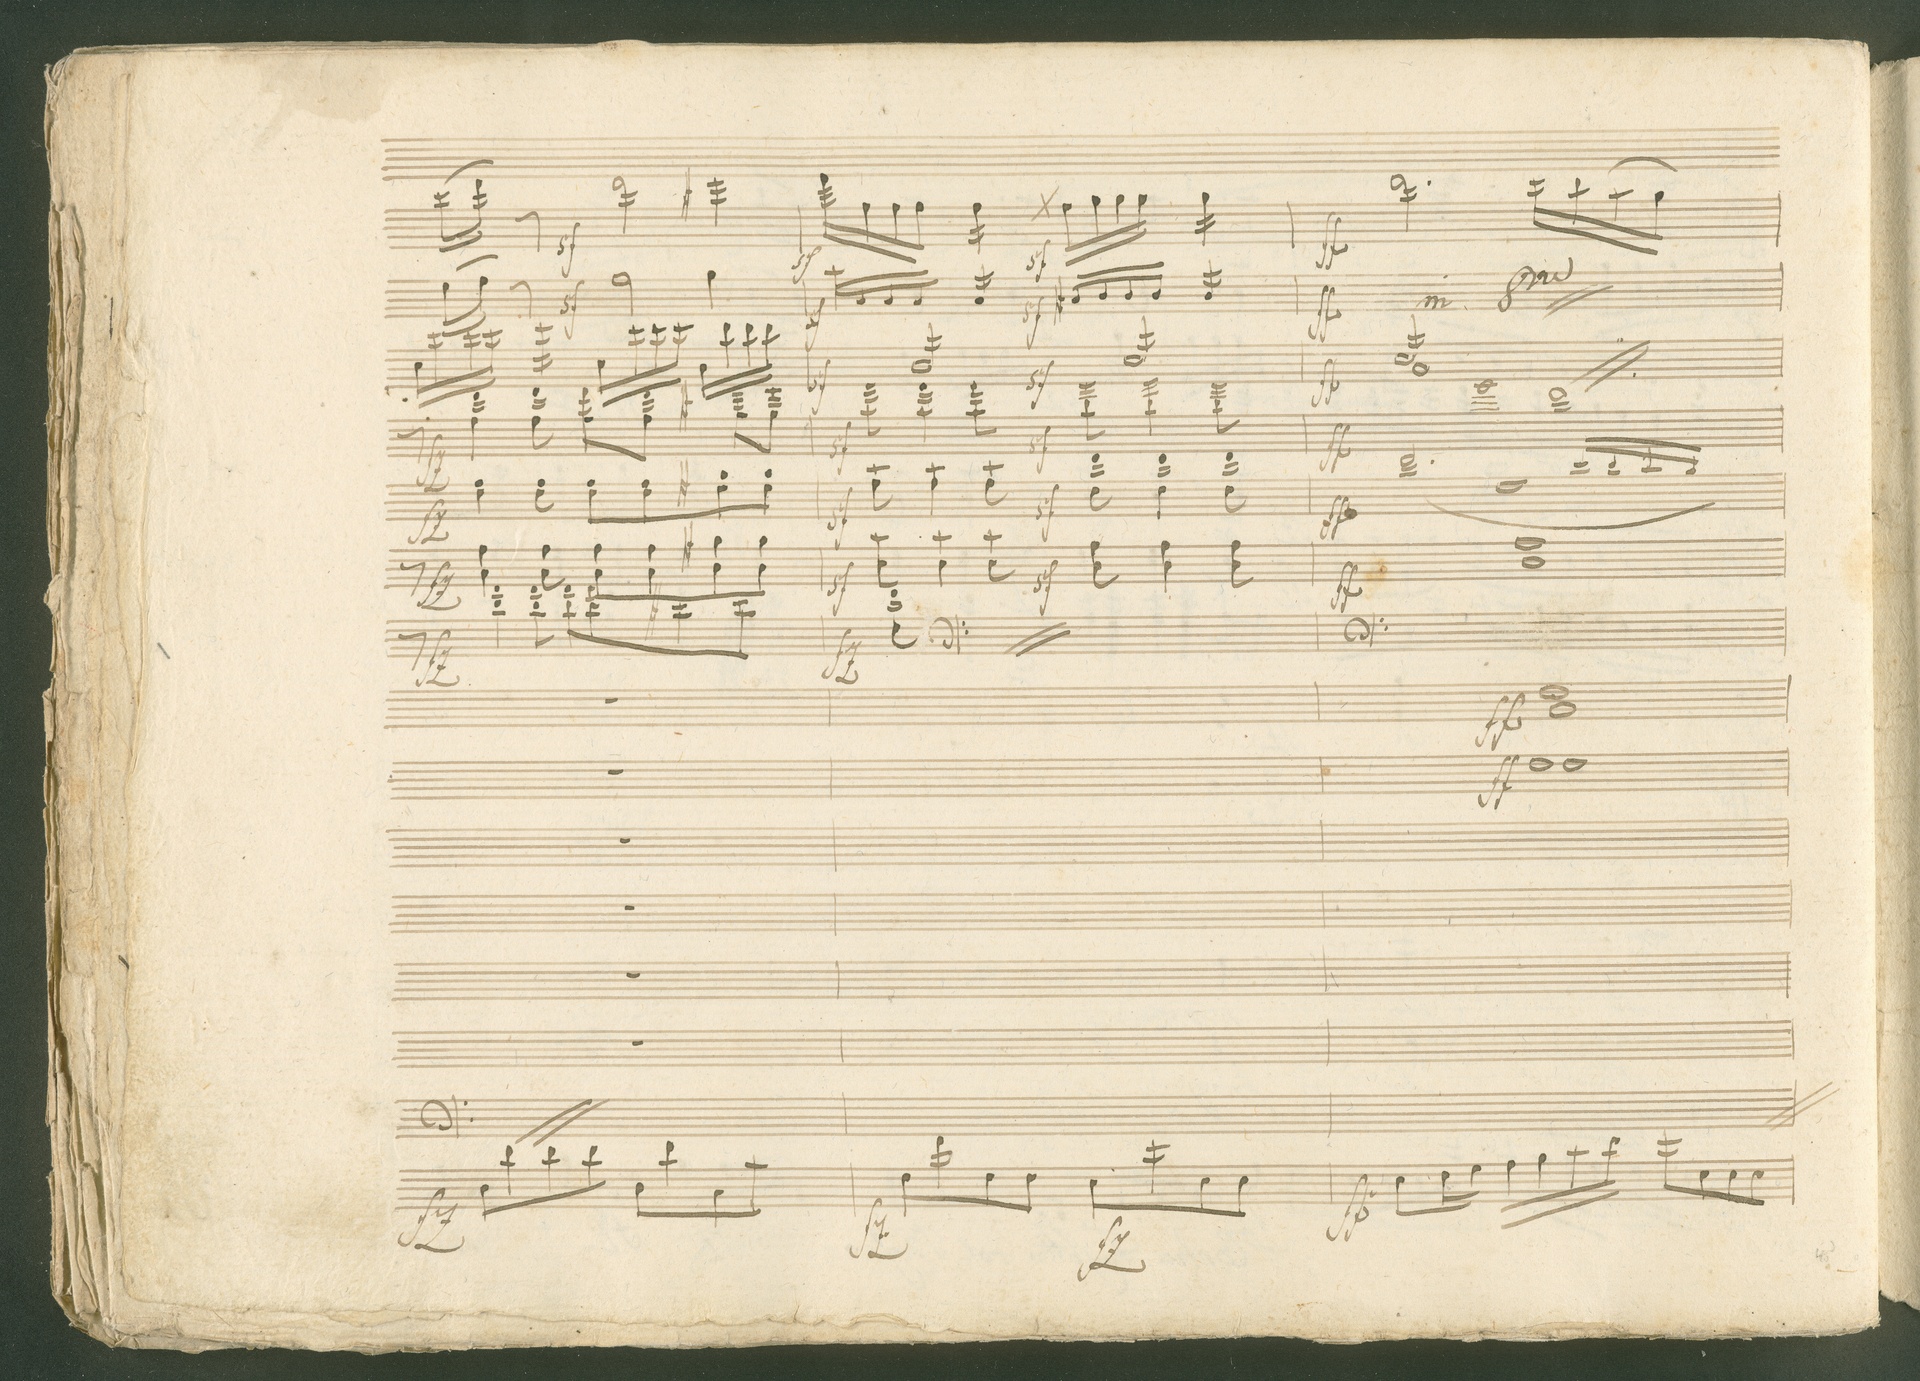 sf sf sf ff
sf sf sf ff in 8va
sf sf ff
fz sf sf ff
fz sf sf ff
fz sf sf ff
fz fz
ff
ff
fz fz fz ff